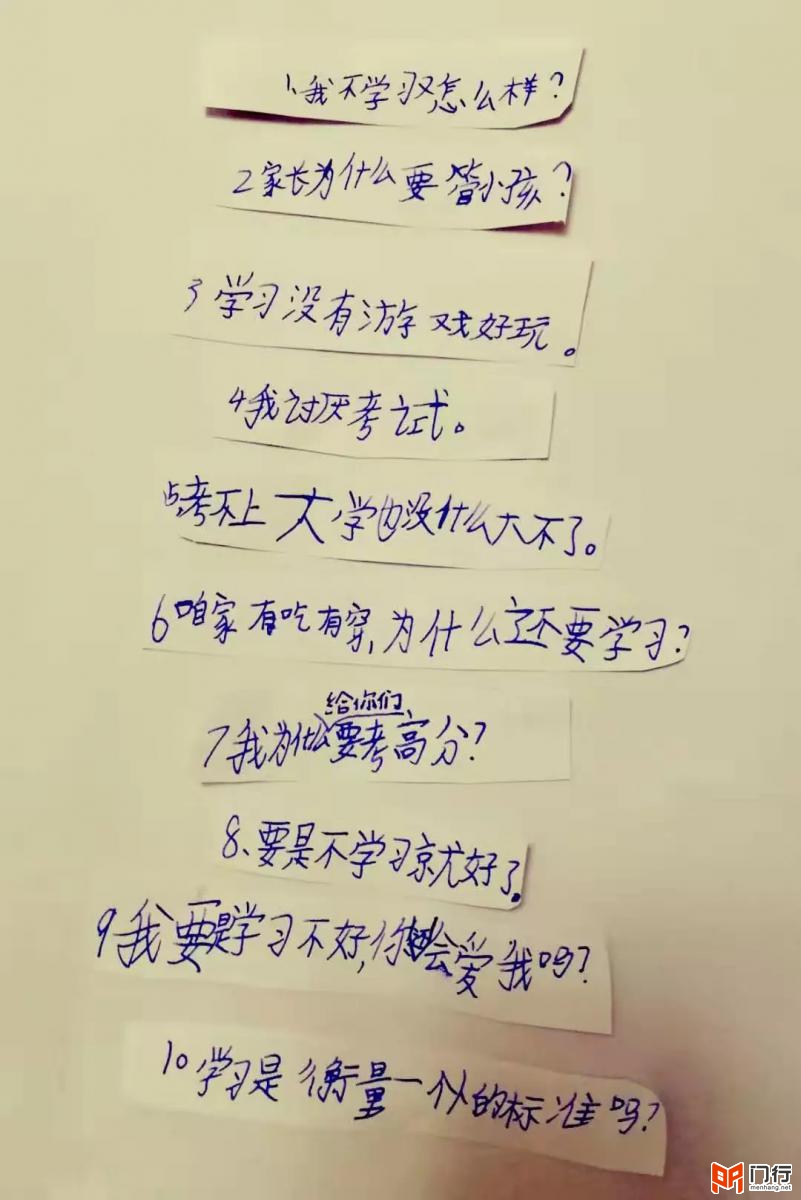 1、我不学习又怎么样？
2家长为什么要管小孩？
3学习没有游戏好玩。
4我讨厌考试。
5考不上大学也没什么大不了。
6咱家有吃有穿,为什么还要学习？
给你们、
7我为什么要考高分？
8、要是不学习就好了。
9我要是学习不好,你会爱我吗？
10学习是衡量一个人的标准吗？
门行
menhang.net